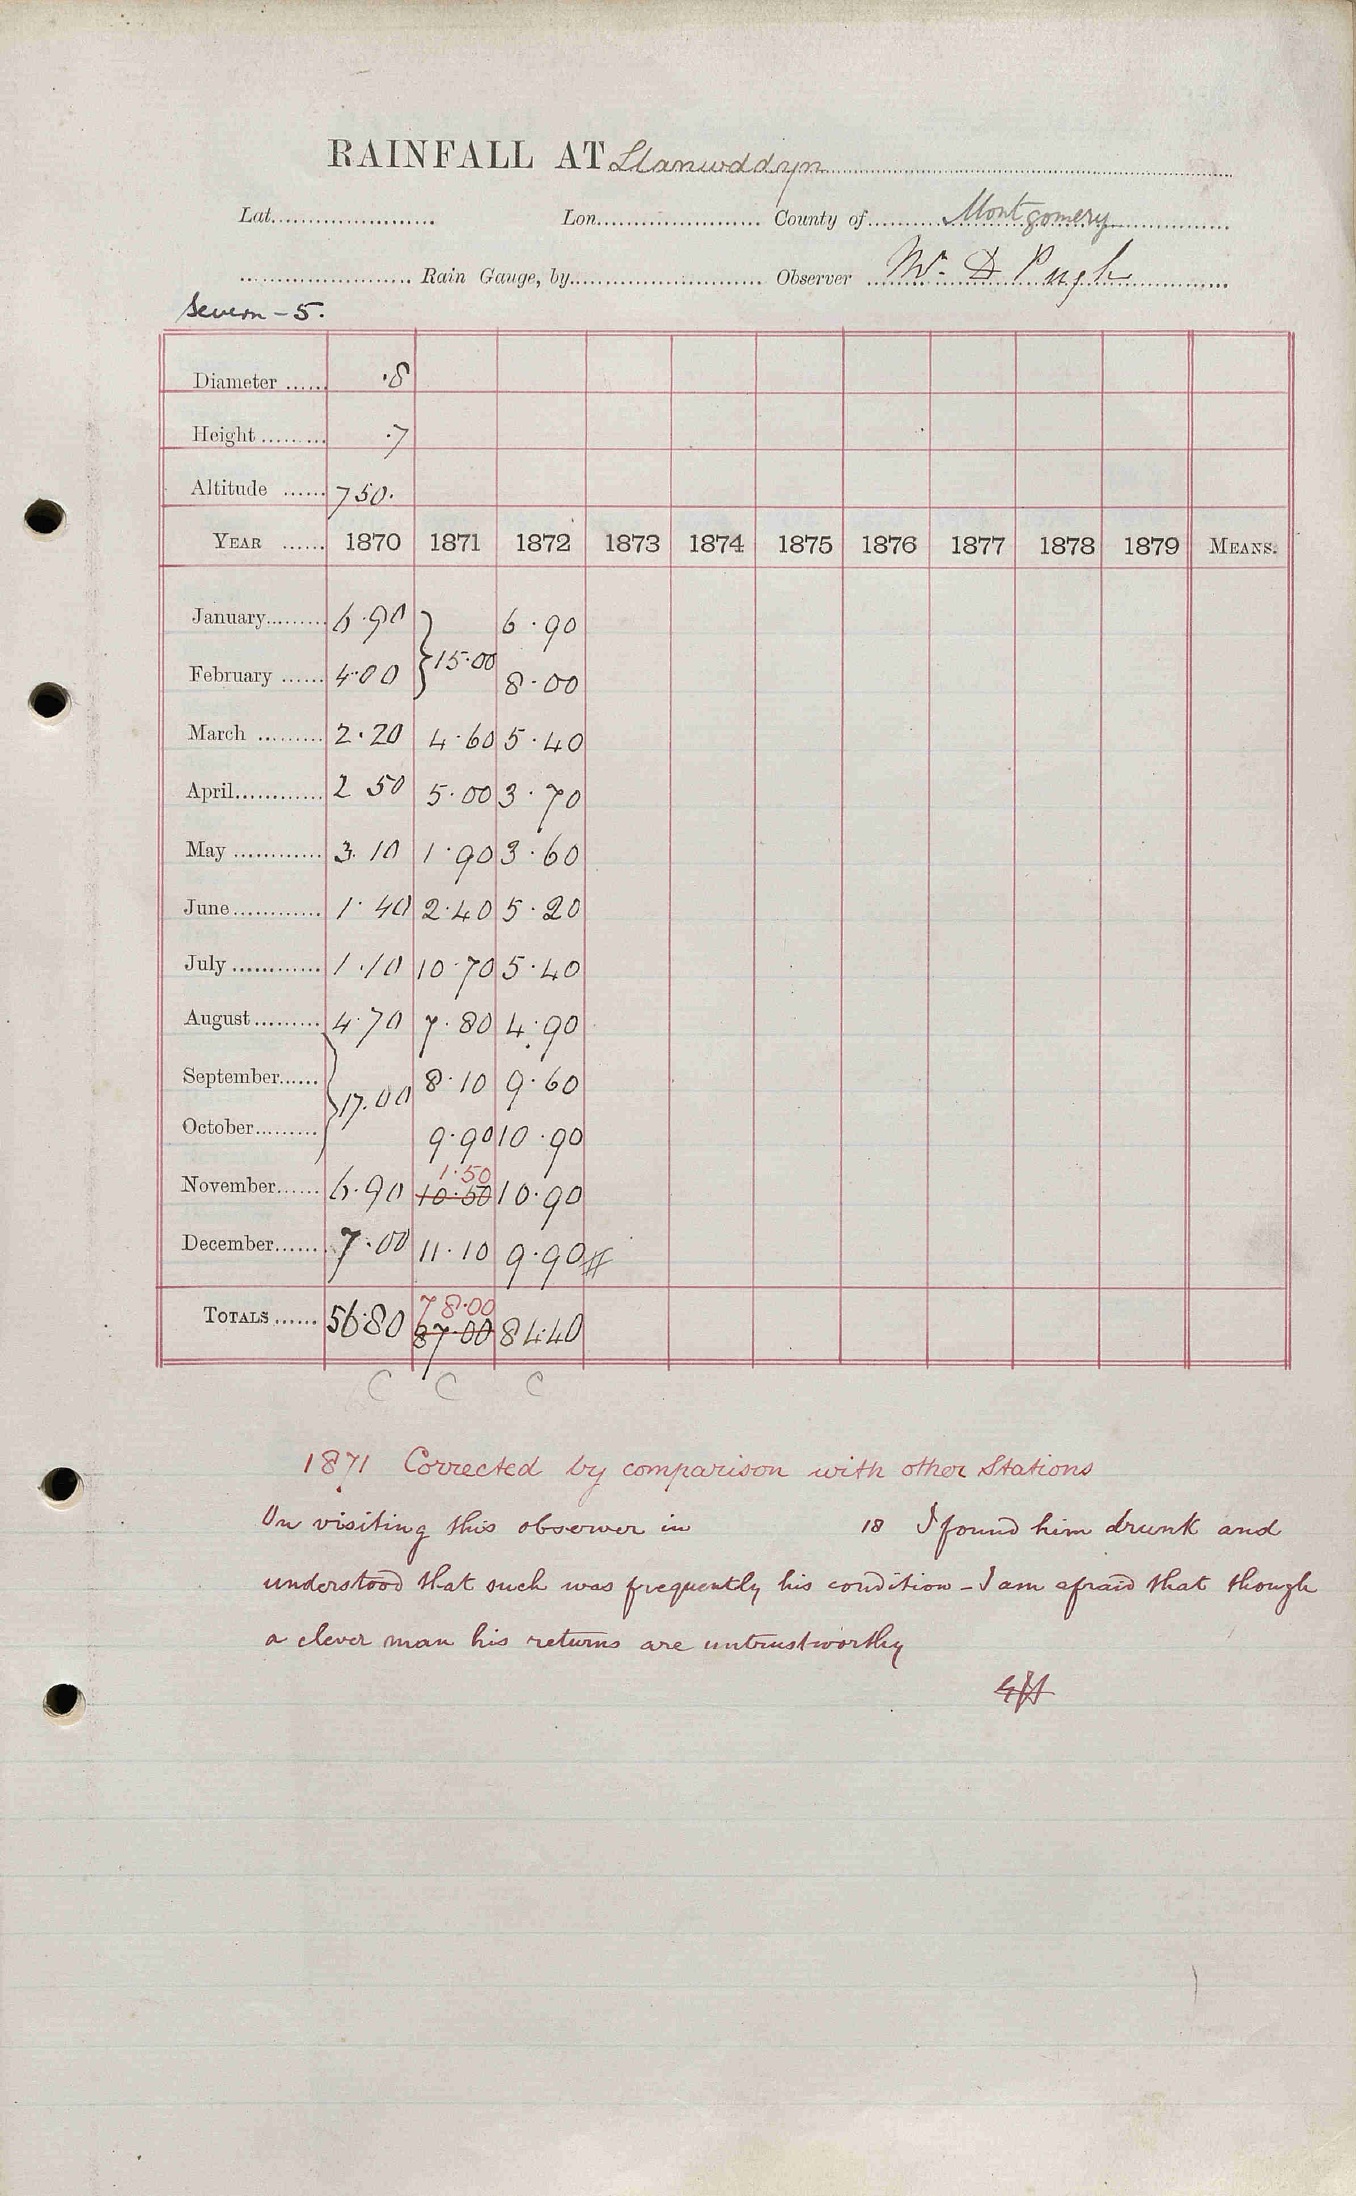 RAINFALL AT Llanwddyn
Lat. Lon. County of Montgomery
Rain Gauge, by Observer Mr. D Pugh
Severn - 5.
Diameter ·8
Height ·7
Altitude 750·
YEAR 1870 1871 1872 1873 1874 1875 1876 1877 1878 1879 MEANS.
January 6·90 6·90
} 15·00
February 4·00 8·00
March 2·20 4·60 5·40
April 2 50 5·00 3·70
May 3·10 1·90 3·60
June 1·40 2·40 5·20
July 1·10 10·70 5·40
August 4·70 7·80 4·90
September 8·10 9·60
} 17·00
October 9·90 10·90
1·50
November 6·90 10·50 10·90
December 7·00 11·10 9·90 #
78·00
TOTALS 56·80 87·00 84·40
C C C
1871 Corrected by comparison with other Stations
On visiting this observer in 18 I found him drunk and
understood that such was frequently his condition - I am afraid that though
a clever man his returns are untrustworthy